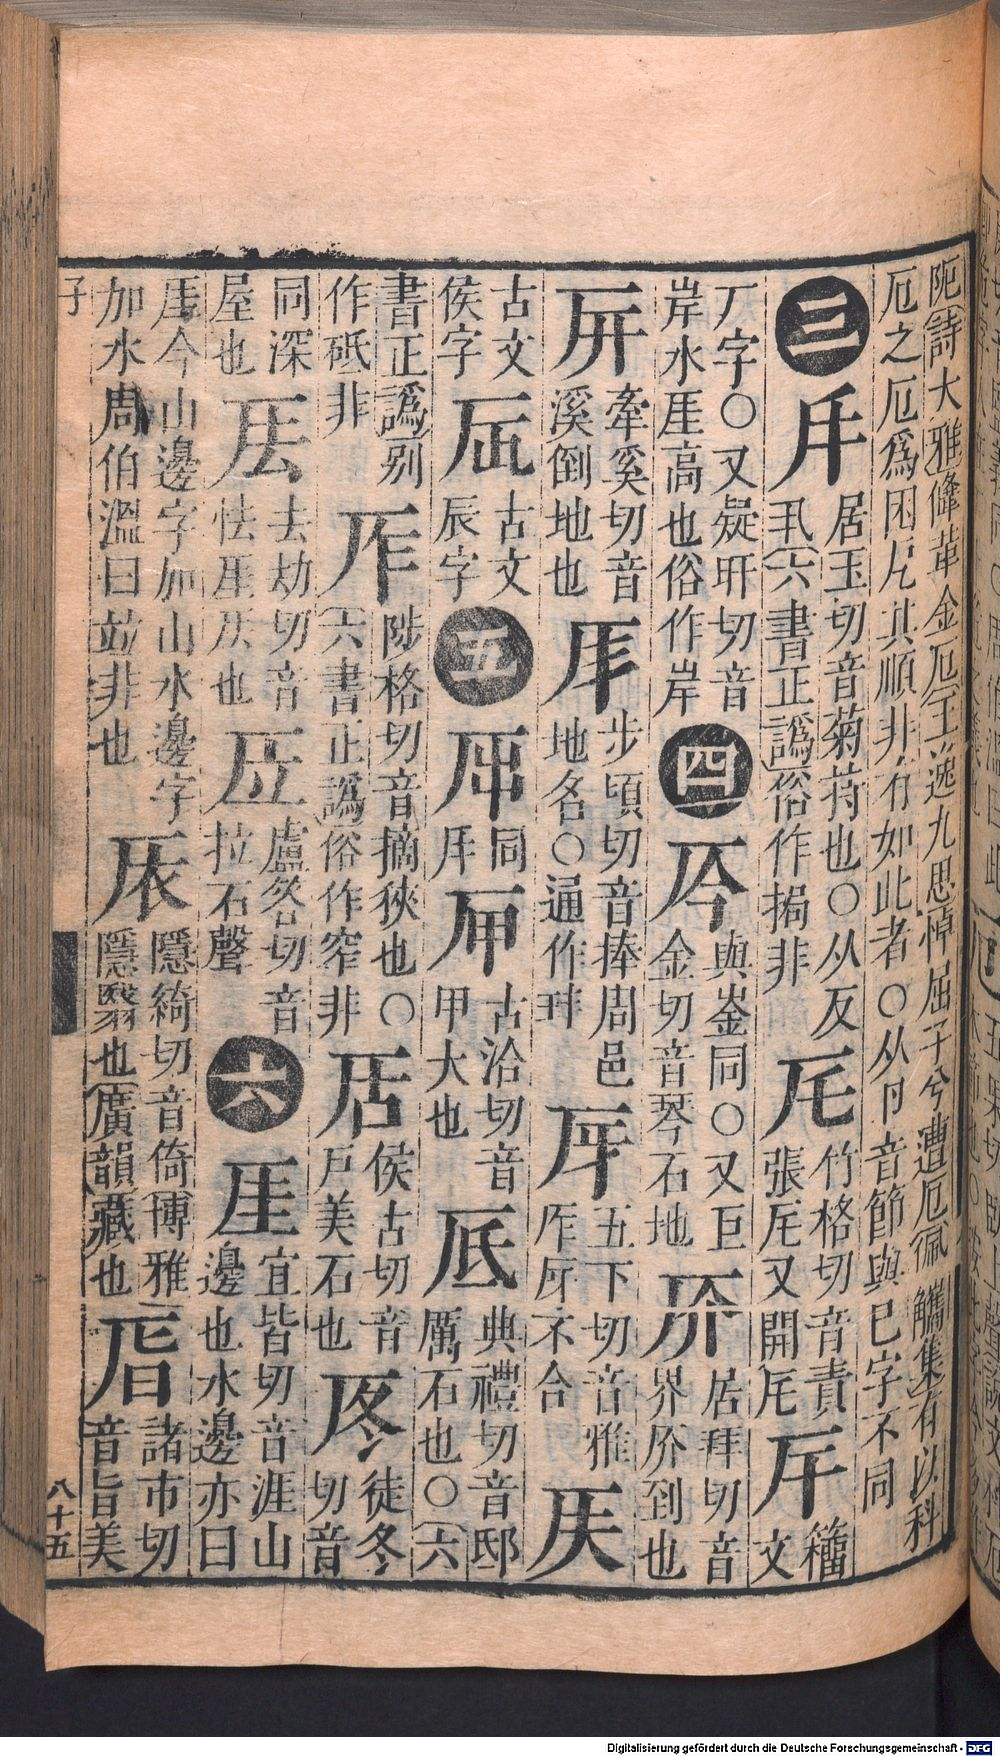 阨詩大雅鞗革金厄王逸九思悼屈子兮遭厄佩觿集有以科
厄之厄爲困厄其順非有如此者○从卪音節與巳字不同
三 𠨭 居玉切音菊持也○从反
丮六書正譌俗作挶非
厇 竹格切音責
張厇又開厇
厈 籀文
厂字○又疑玕切音
岸水厓高也俗作岸
四 㕂 與崟同○又巨
金切音琴石地
㕀 居拜切音
界㕀到也
㕃 牽奚切音
溪倒地也
𠩋 步項切音捧周邑
地名○通作玤
厊 五下切音雅
厏厊不合
𠨮 古文
侯字
𠨷 古文
辰字
五 同
厗
厘 古洽切音
甲大也
厎 典禮切音邸
厲石也○六
書正譌別
作砥非
厏 陟格切音摘狹也○
六書正譌俗作窄非
𠩂 侯古切音
戶美石也
㕅 徒冬切音
同深
屋也
㕁 去劫切音
怯厓㕁也
㕇 盧盍切音
拉石聲
六 厓 宜皆切音涯山
邊也水邊亦曰
厓今山邊字加山水邊字
加水周伯溫曰竝非也
㕈 隱綺切音倚博雅
隱翳也廣韻藏也
㕄 諸市切
音旨美
子
八十五
Digitalisierung gefördert durch die Deutsche Forschungsgemeinschaft - DFG